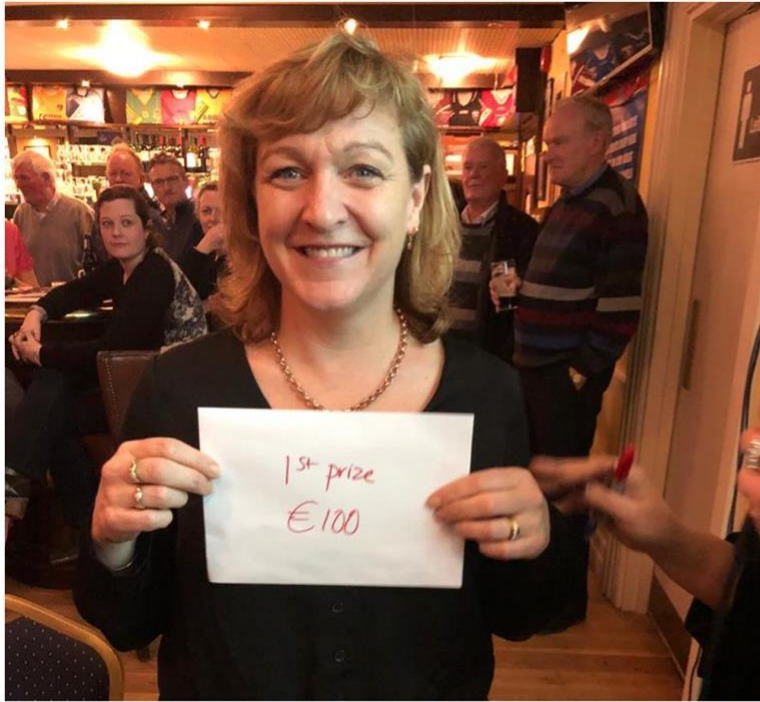 1st prize
€100